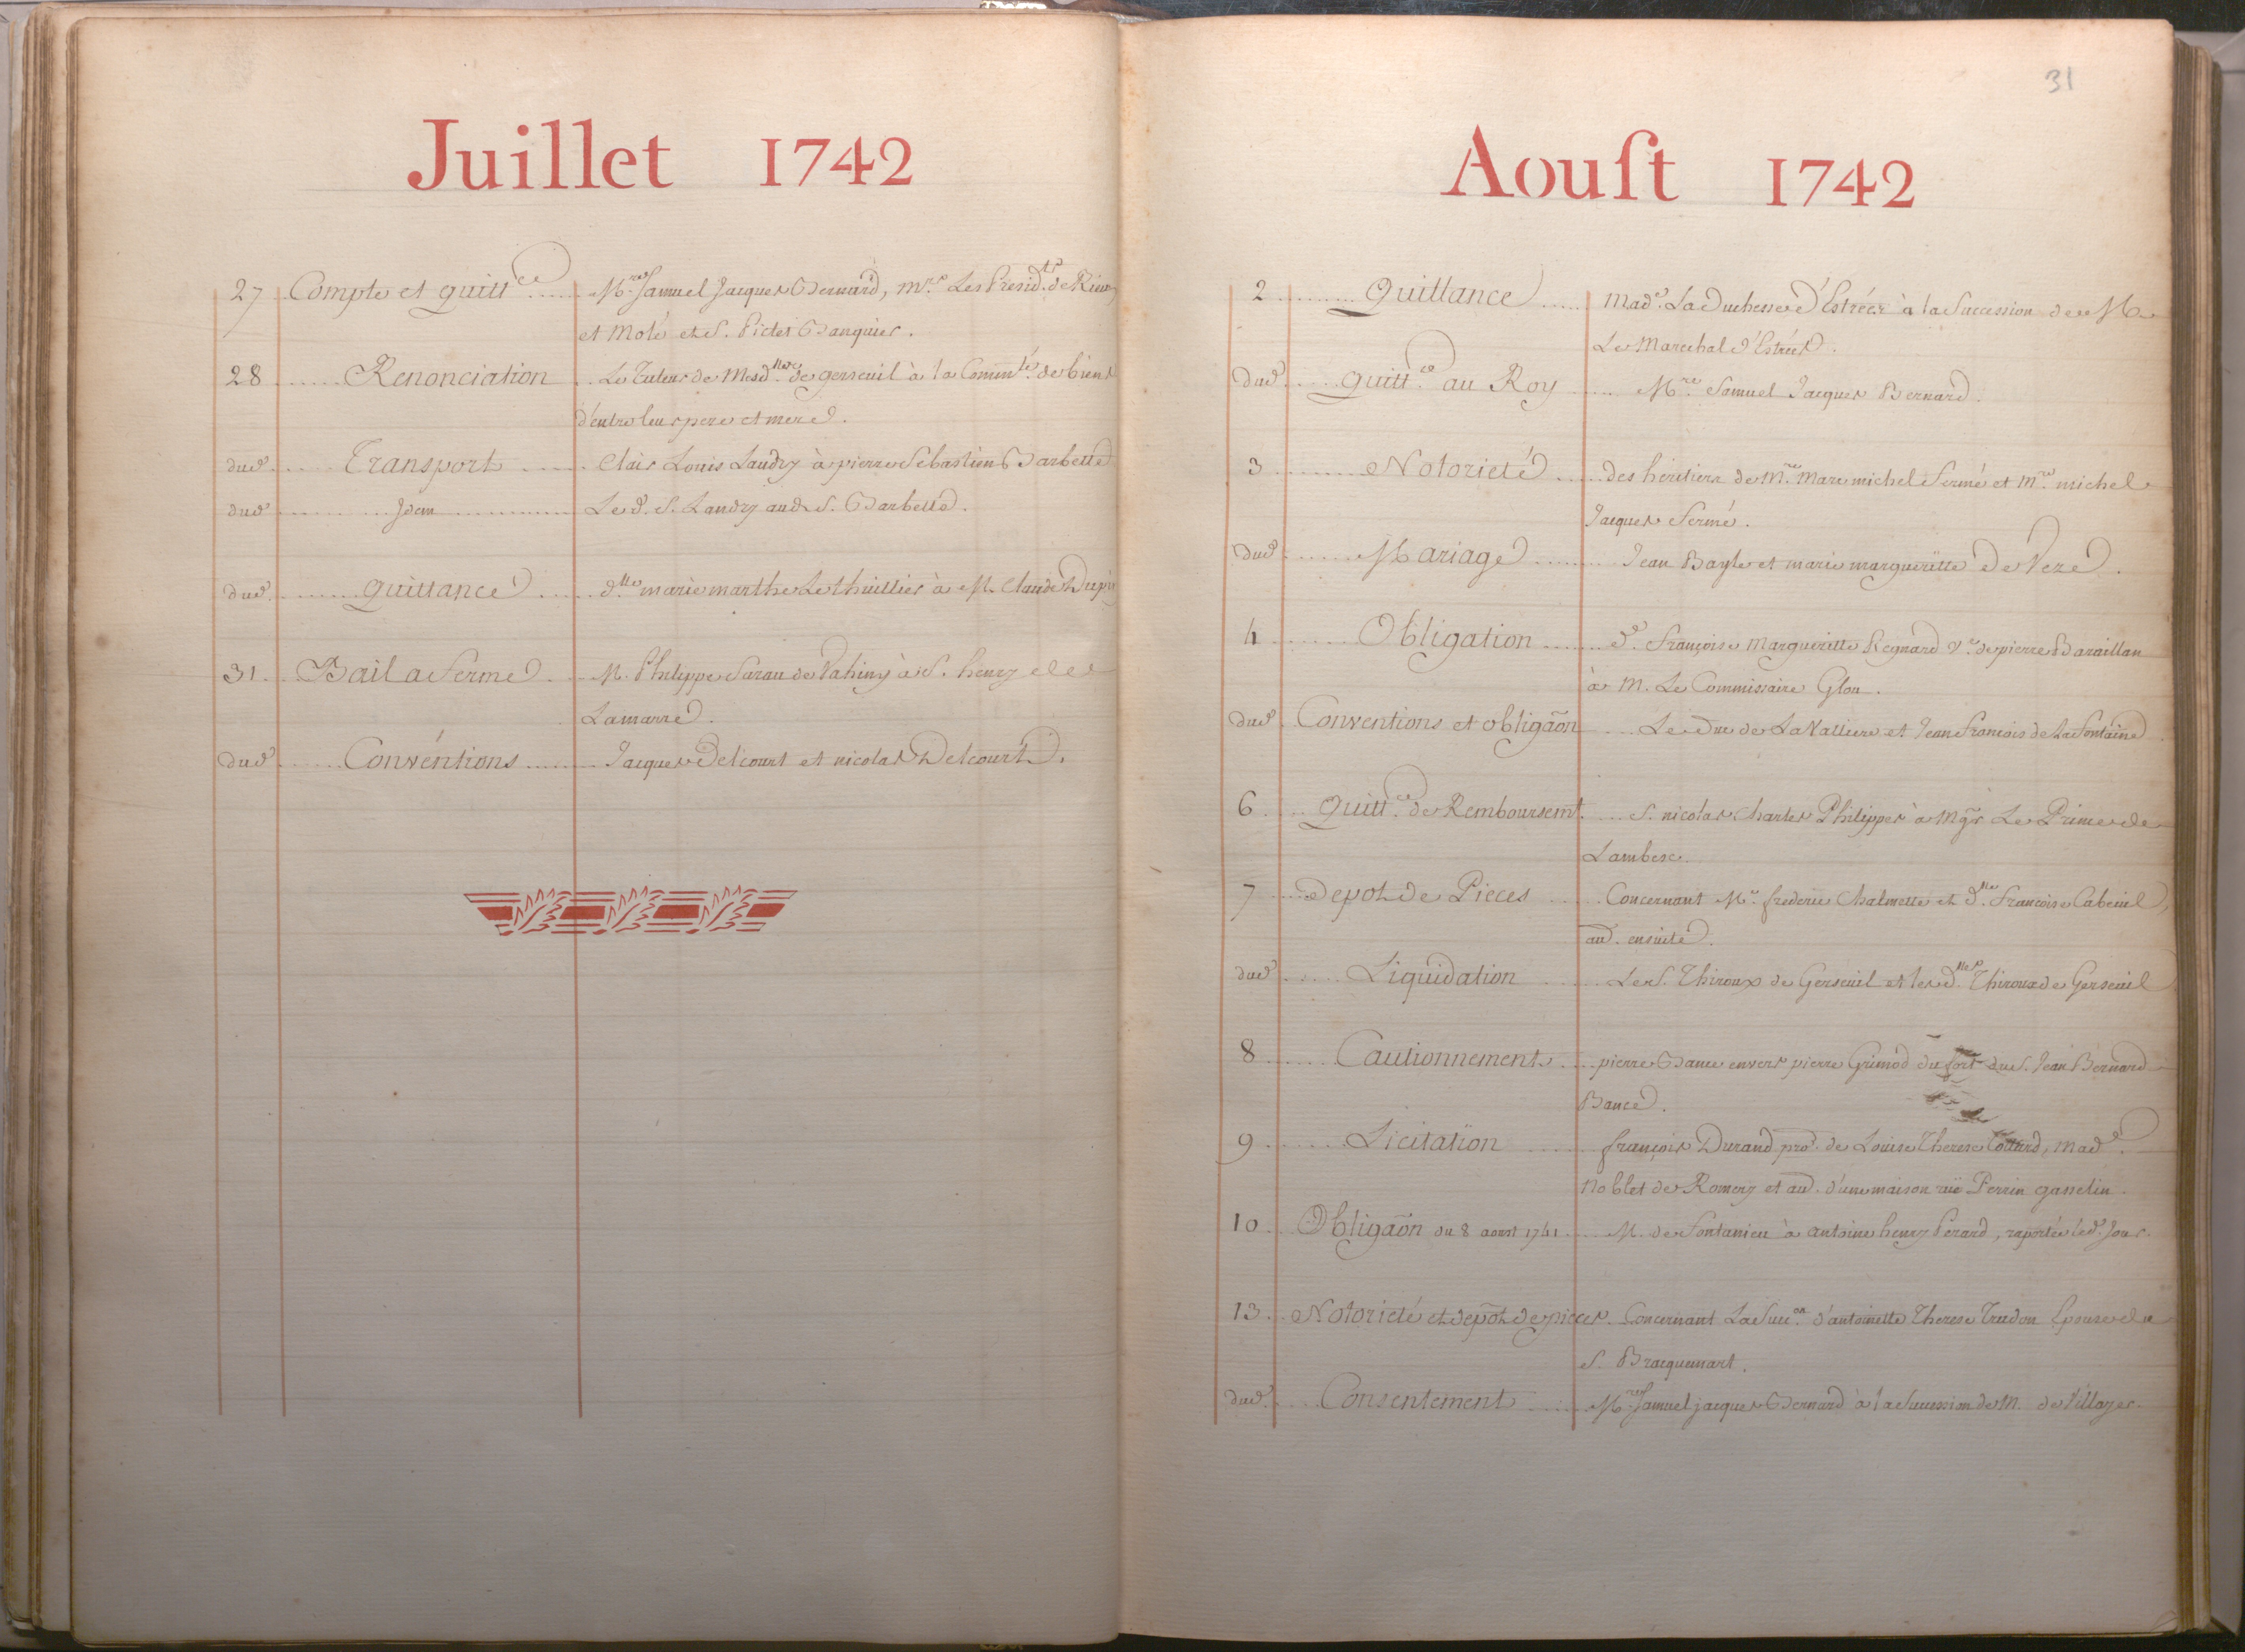 Juillet 1742
27 Compte et quitt.ce Mre Samuel Jacques Bernard, Mrs. Les Presid.ts de Rieux
et Molé et S. Pictet Banquier.
28 Renonciation Le Tuteur de Mesd.lles de gerseuil à la Commté de biens
d'entre leurs pere et mere.
dud. Transport Clair Louis Landry à pierre Sebastien Barbette
dud. Idem Led. S. Landry aud. S. Barbette.
dud. Quittance d.lle marie marthe Le thuillier à M. Claude Dupin
31 Bail a ferme M. Philippe Sarau de Vahiny à S. henry de
Lamarre.
dud. Conventions Jacques Delcourt et nicolas Delcourt.
31
Aoust 1742
2 Quittance Made. La Duchesse d'Estrées à la Succession de M.
Le Marechal d'Estrées.
dud. quitt.ce au Roy Mre Samuel Jacques Bernard.
3 Notorieté des heritiers de Mre Marc michel Fermé et Mre michel
Jacques fermé.
dud. Mariage Jean Bayle et marie margueritte de Veze.
4 Obligation de. Françoise Margueritte Regnard Ve. de pierre Baraillon
à M. Le Commissaire Glou.
dud. Conventions et obligaõn Le Duc de La Valliere et Jean François de La fontaine
6 Quitt.ce de Remboursemt. S. nicolas Charles Philippes à Mgr. Le Prince de
Lambesc.
7 depot de Pieces Concernant Mre frederic Chalmette et d.lle Françoise Cabeuil,
and. ensuite.
dud. Liquidation Le S. Thiroux de Gerseuil et les d.lles Thiroux de Gerseuil
8 Cautionnement pierre Bance envers pierre Grimod du fort du S. Jean Bernard
Bance.
9 Licitation françois Durand pro. de Louise Therese Cottard, Made.
Noblet de Romery et au. d'une maison rüe Perrin gasselin.
10 Obligaõn du 8 aoust 1741 M. de Fontanieu à antoine henry Perard, raportée led. Jour.
13 Notorieté et depôt de pieces Concernant La Succ.on d'antoinette Therese Trudon Epouse du
S. Bracquemart.
dud. Consentement Mre Samuel jacques Bernard à la Succession de M. de Villayer.